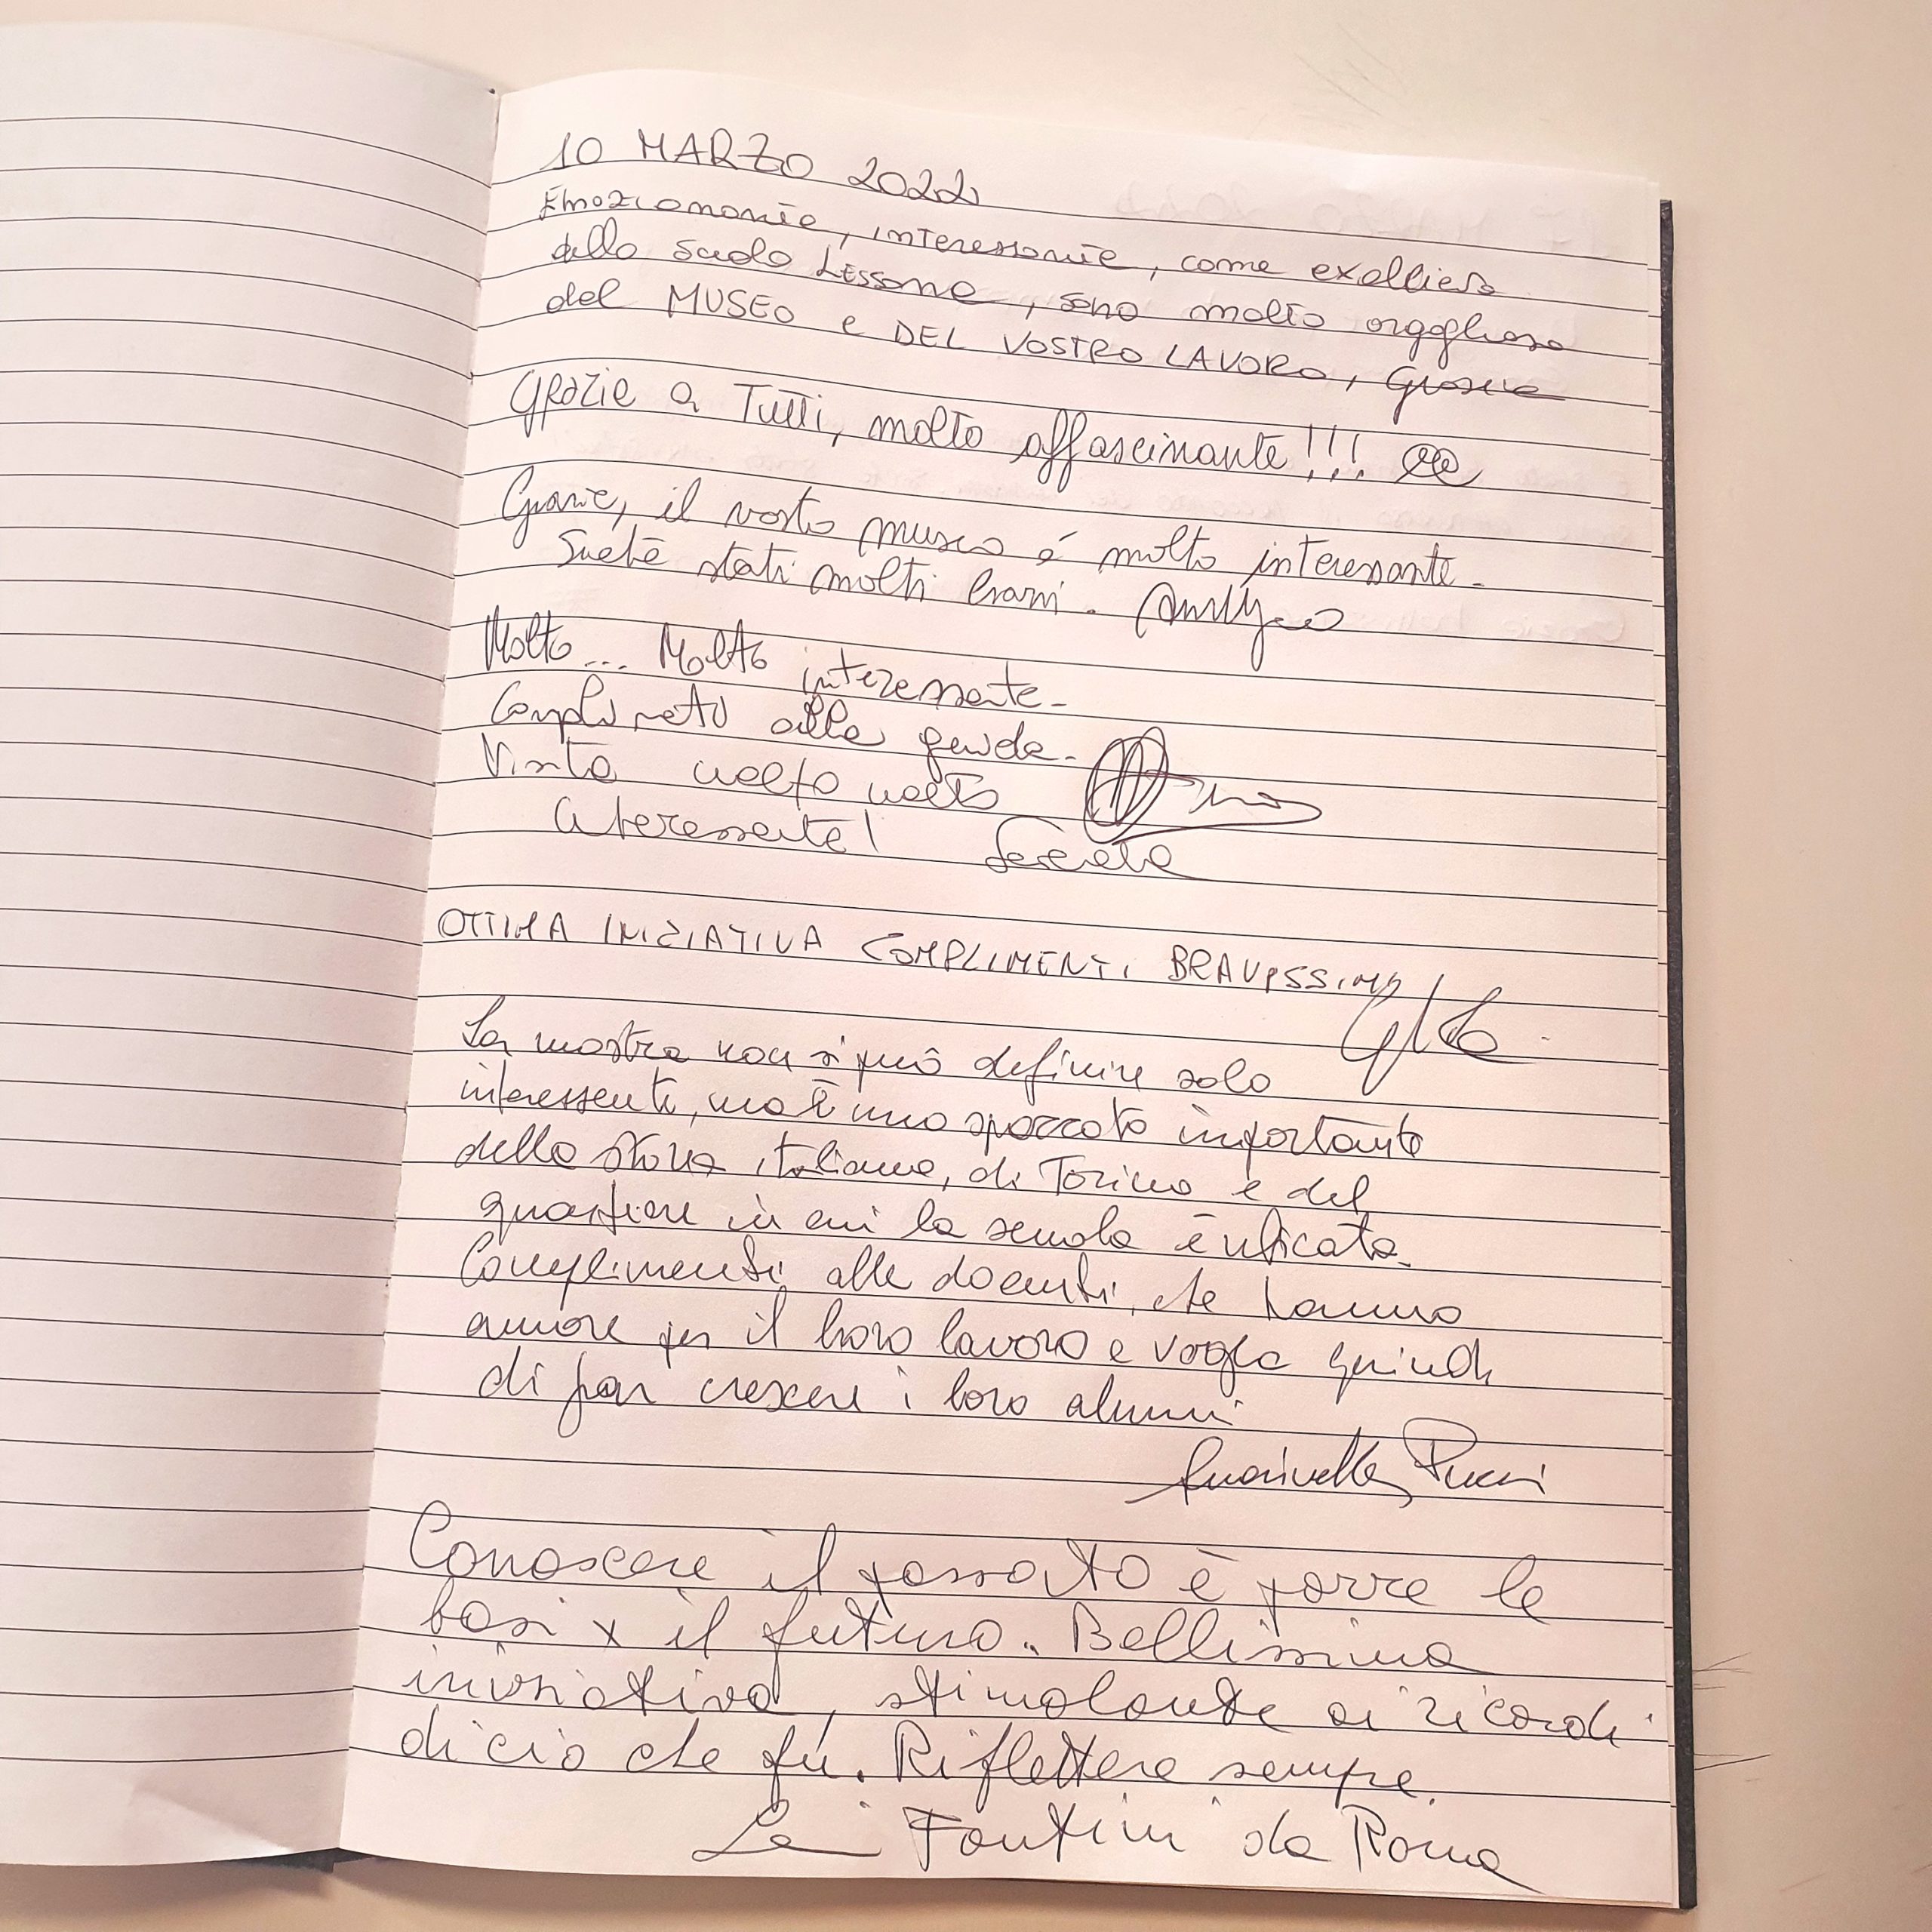 10 MARZO 2022
Emozionante, interessante, come exallieva
della scuola Lessona, sono molto orgogliosa
del MUSEO e DEL VOSTRO LAVORO, Grazie
Grazie a Tutti, molto affascinante!!!
Grazie, il vostro museo é molto interessante.
Siete stati molti bravi.
Molto... Molto interessante.
Complimenti alla guida.
Visita molto molto
interessante!
OTTIMA INIZIATIVA COMPLIMENTI BRAVISSIMI
La mostra non si può definire solo
interessante, ma è uno spaccato importante
della storia italiana, di Torino e del
quartiere in cui la scuola è ubicata.
Complimenti alle docenti, che hanno
amore per il loro lavoro e voglia quindi
di far crescere i loro alunni
Pucci
Conoscere il passato è porre le
basi x il futuro. Bellissima
iniziativa, stimolante ai ricordi
di ciò che fù. Riflettere sempre.
Fantini da Roma